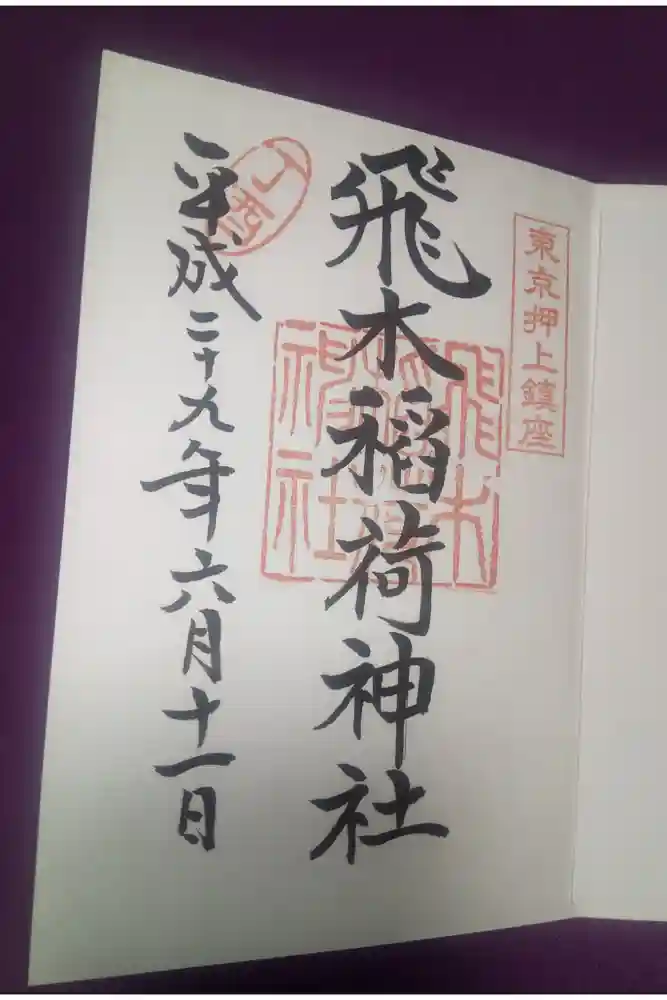 東京押上鎮座
飛木稲荷神社
飛木
稲荷
神社
丁酉
平成二十九年六月十一日